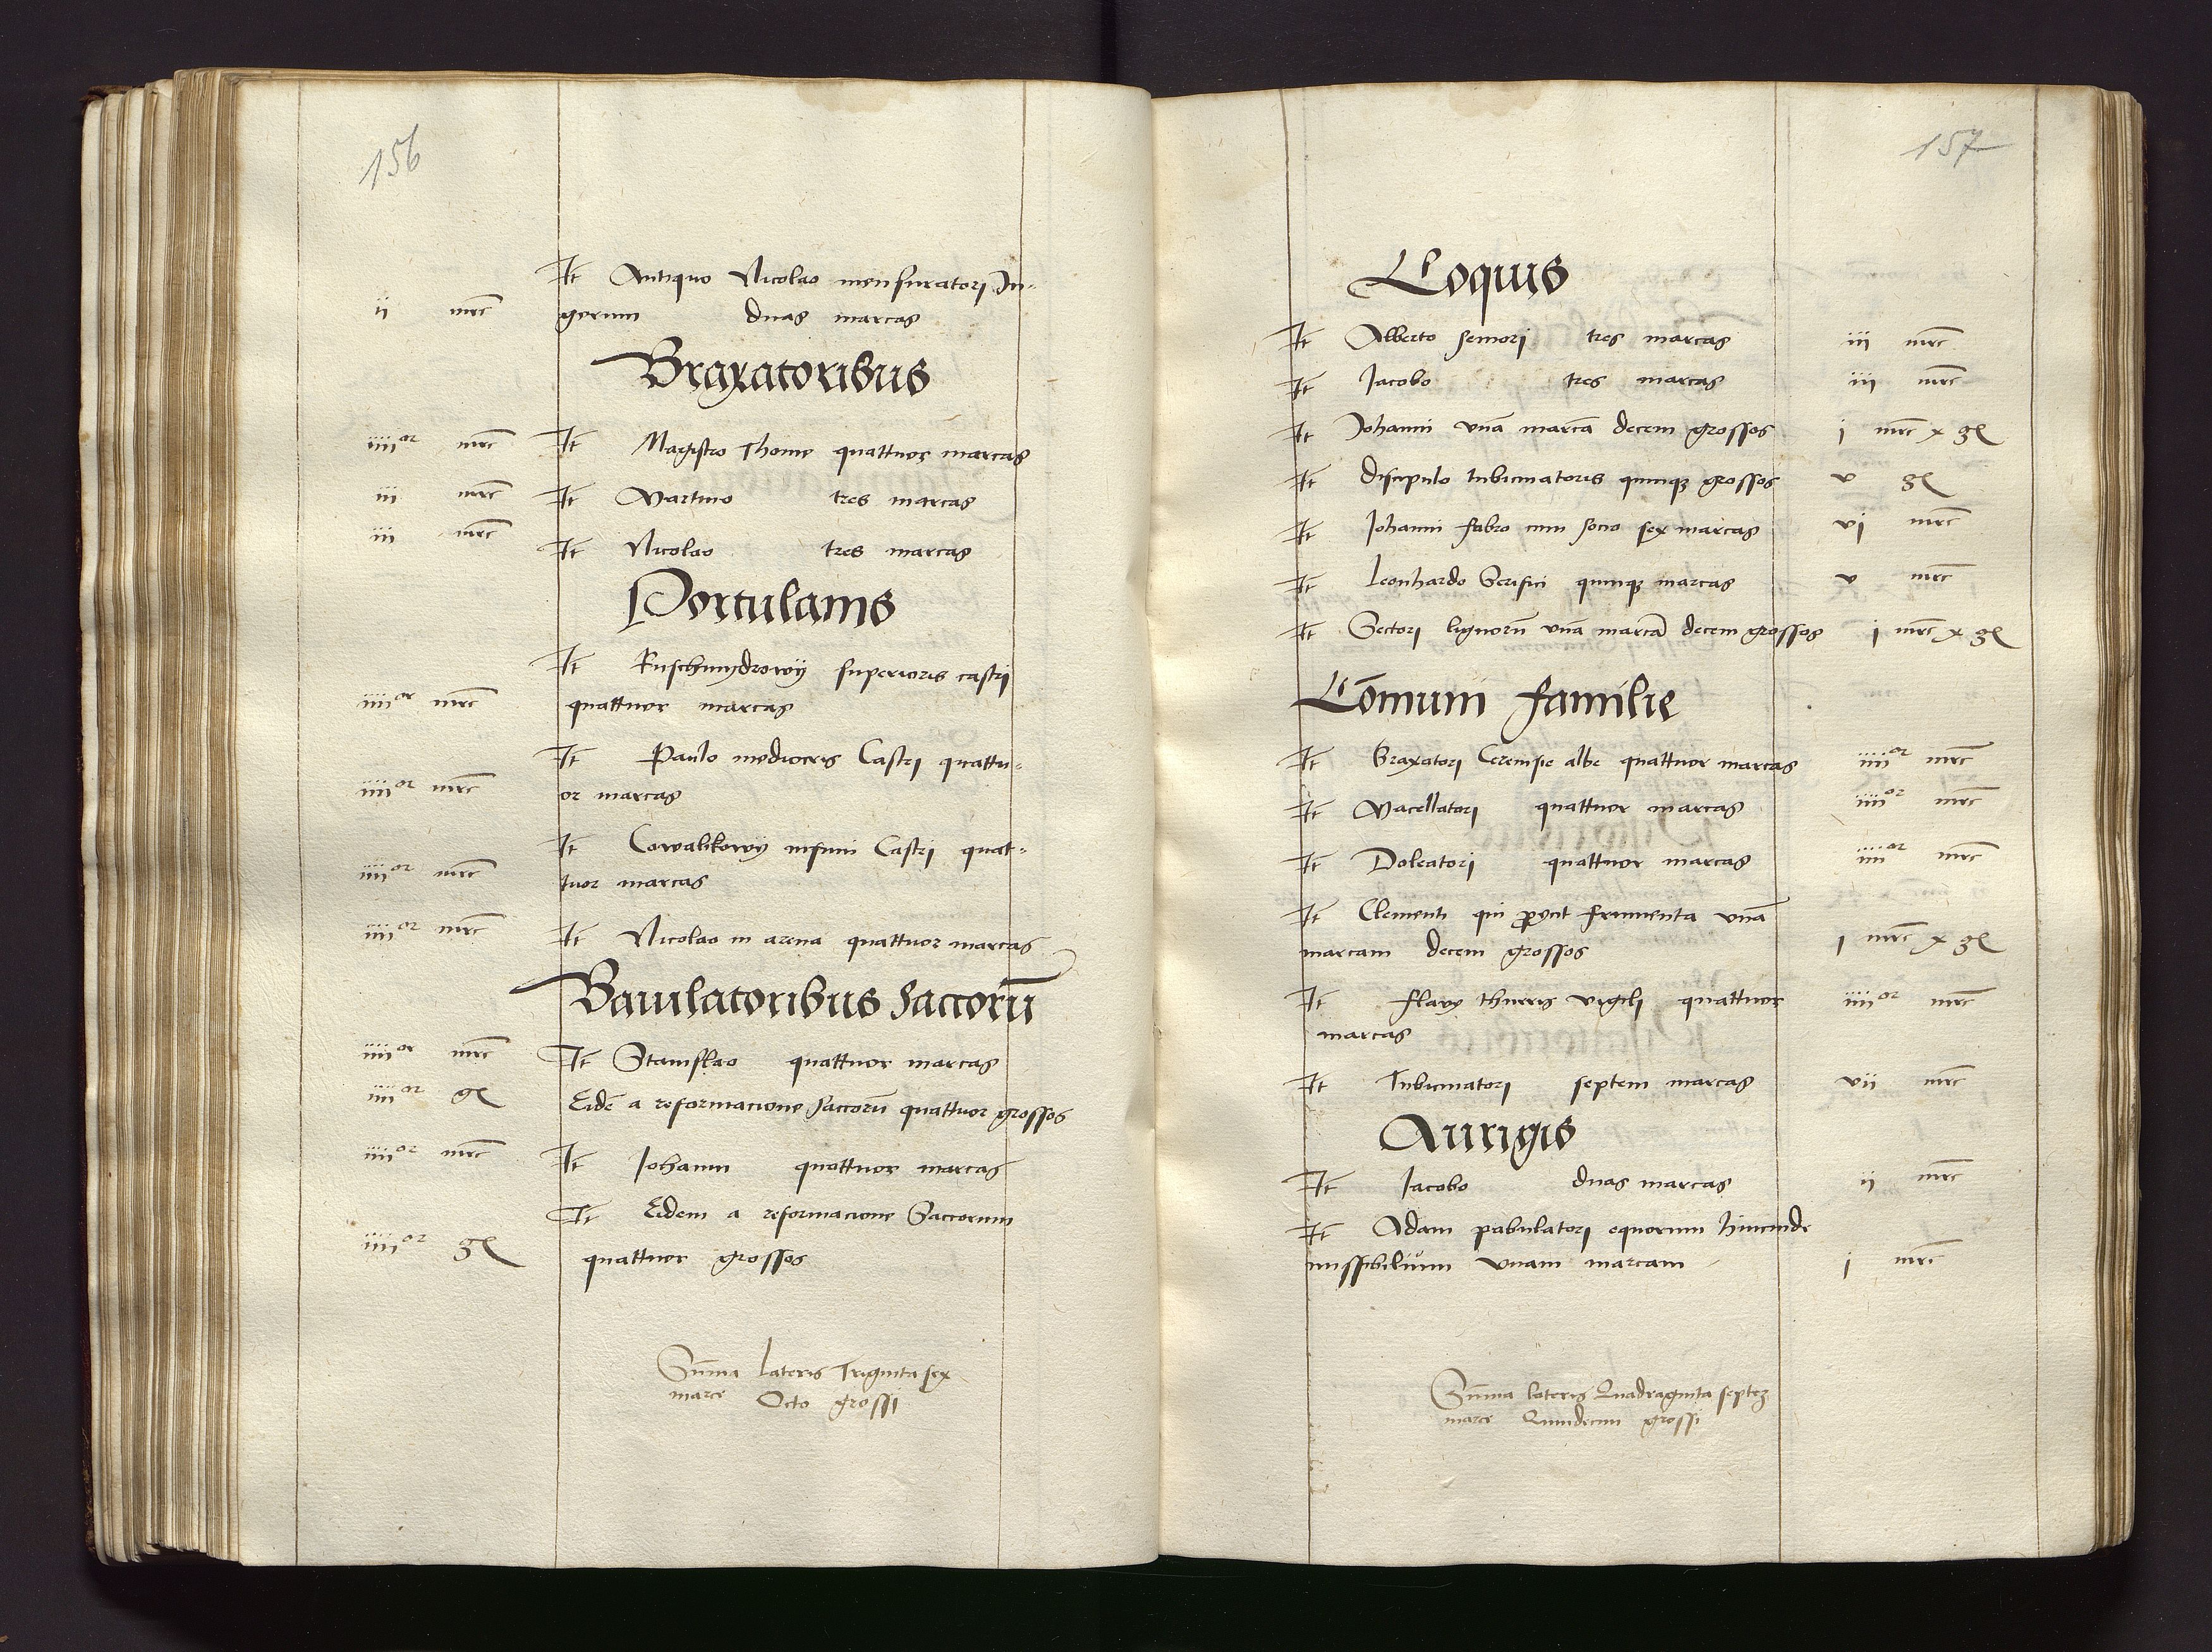 156
It Antiquo Nicolao mensuratori Iu-
ii mrc gerum duas marcas
Braxatoribus
iiii^or mrc It Magistro Thome quattuor marcas
iii mrc It Martino tres marcas
iii mrc It Nicolao tres marcas
Portulanis
It superioris castri
iiii^or mrc quattuor marcas
It Paulo mediocris Castri quattu-
iiii^or mrc or marcas
It Cowalikowÿ infimi Castri quat-
iiii^or mrc tuor marcas
iiii^or mrc It Nicolao in arena quattuor marcas
Baiulatoribus saccorū
iiii^or mrc It Stanislao quattuor marcas
iiii^or gl Eidē a reformacione saccorū quattuor grossos
iiii^or mrc It Johanni quattuor marcas
It Eidem a reformacione Saccorum
iiii^or gl quattuor grossos
Sūma lateris Triginta sex
marce Octo grossi
157
Coquis
It Alberto seniori tres marcas iii mrc
It Jacobo tres marcas iii mrc
It Johanni vnā marcā decem grossos i mrc x gl
It discipulo tubicinatoris quinqꝫ grossos v gl
It Johanni fabro cum socio sex marcas vi mrc
It Leonhardo Serifici quinqꝫ marcas v mrc
It Sectori lignorū vnā marcā decem grossos i mrc x gl
Cōmuni familie
It Braxatori Cereuisie albe quattuor marcas iiii^or mrc
It Macellatori quattuor marcas iiii^or mrc
It Doleatori quattuor marcas iiii^or mrc
It Clementi qui ꝓijcit frumenta vnā
marcam decem grossos i mrc x gl
It flavy thurris vigili quattuor iiii^or mrc
marcas
It Tubicinatori septem marcas vii mrc
Aurigis
It Jacobo duas marcas ii mrc
It Adam pabulatori equorum hincinde
missibilium vnam marcam i mrc
Sūma lateris Quadraginta septeꝫ
marce Quindecim grossi